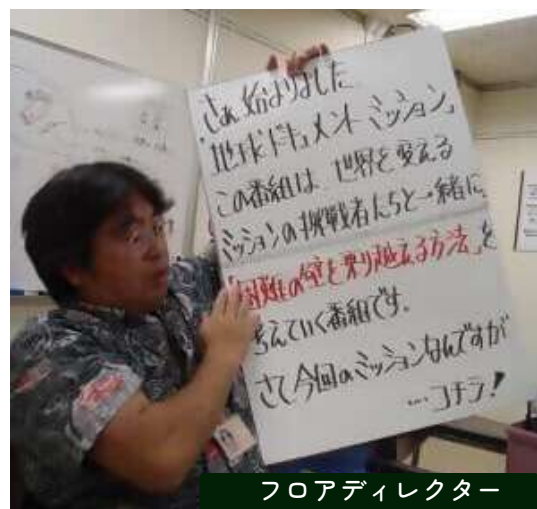 さぁ始まりました
「地球ドキュメントミッション」
この番組は 世界を変える
ミッションの挑戦者たちと一緒に
「困難の壁を乗り越える方法」を
考えていく番組です。
さて今回のミッションなんですが
…コチラ!
フロアディレクター